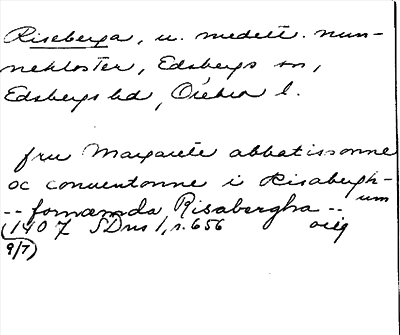 Riseberga, u. medelt. nun-
nekloster, Edsbergs sn,
Edsbergs hd, Örebro l.
fru Margarete abbatissonne
oc conuentonne i Risabergh-
um
-- fornæmda Risabergha --
(1407 SDns 1, s. 656 orig
9/7)